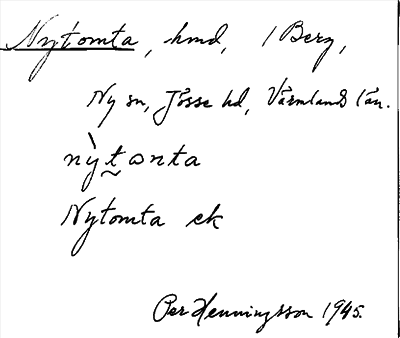 Nytomta, hmd, 1 Berg,
Ny sn, Jösse hd, Värmlands län.
nỳt̰ɷnta
Nytomta ek
Per Henningsson 1945.